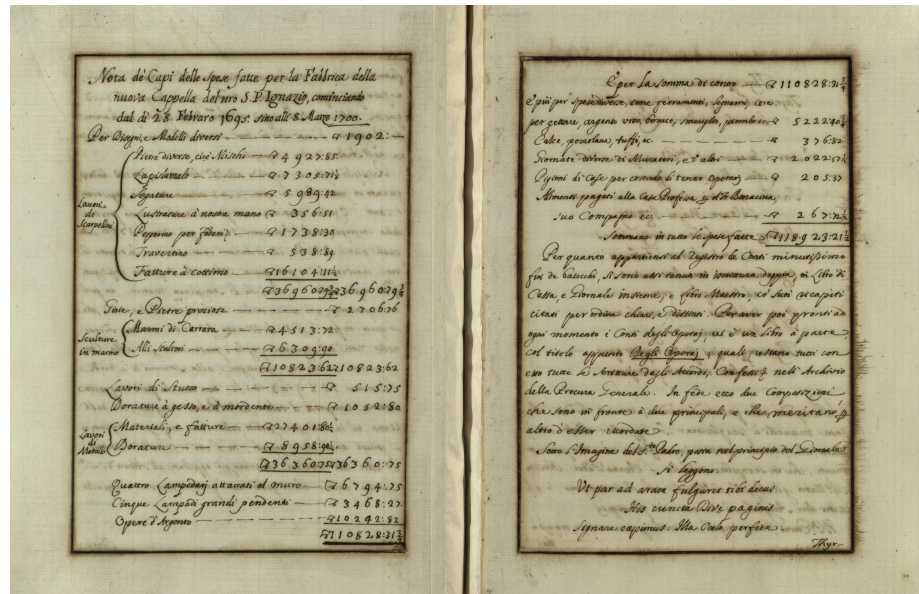 Nota de' Capi delle Spese fatte per la Fabbrica della
nuova Cappella del nro S. P. Ignazio, cominciando
dal dì 28. Febraro 1695. sino alli 8. Marzo 1700.
Per Disegni, e Modelli diversi 1902:
Lavori di Scarpellini
Pietre diverse, cioè Mischi 4927:85
Lapislazalo 7305:71½
Segature 5989:42
Lustrature à nostra mano 356:51
Peperino per foderi 1738:30
Travertino 538:89
Fatture à cottimo 16104:11½
36960:79¾ 36960:79¾
Gioie, e Pietre preziose 2706:76
Sculture in marmo
Marmi di Carrara 4513:72
Alli Scultori 6309:90
10823:62 10823:62
Lavori di Stucco 515:75
Dorature à gesso, e à mordente 1052:80
Lavori di Metallo
Materiali, e fatture 27401:80½
Dorature 8958:94½
36360:75 36360:75
Quattro Lampedarj attaccati al muro 6794:75
Cinque Lampadi grandi pendenti 3468:27
Opere d'Argento 10242:82
110828:31¾
E per la somma di contro 110828:31¾
E più per spese diverse, come ferramenti, legnami, cere
per gettare, argento vivo, vernice, smeriglio, piombo ec. 5222:40¼
Calce, pozzolana, tuffi, ec. 376:82
Giornate diverse di Muratori, e d'altri 2022:57½
Pigioni di Case per comodo di tener Operarj 205:37
Alimenti pagati alla Casa Professa, p d'Fr. Bonacina,
suo Compagno ec. 267:72½
Sommano in tutto le spese fatte 118923:21½
Per quanto appartiensi al Registro de Conti minutissimo
fin de baiocchi, si sono essi tenuti in scrittura doppia, in Libro di
Cassa, e Giornale insieme, e Libro Maestro, co' suoi ricapiti
citati per ordine chiari, e distinti. Per aver poi pronti ad
ogni momento i Conti degli Operarj, vi è un Libro à parte,
col titolo appunto Degli Operarj, quali restano tutti con
esso tutte le Scritture degli Accordi, Confessi nell'Archivio
della Procura Generale. In fede ecco due Composizioni
che sono in fronte à due principali, e che meritano p
altro d'esser ricordate.
Sotto l'Imagine del S.to Padre, posta nel principio del Giornale
si leggono.
Ut par ad aram fulguret tibi decus
His cuncta Dive paginis
Signare cœpimus: Illa Cœlo perfice.
Thyr-